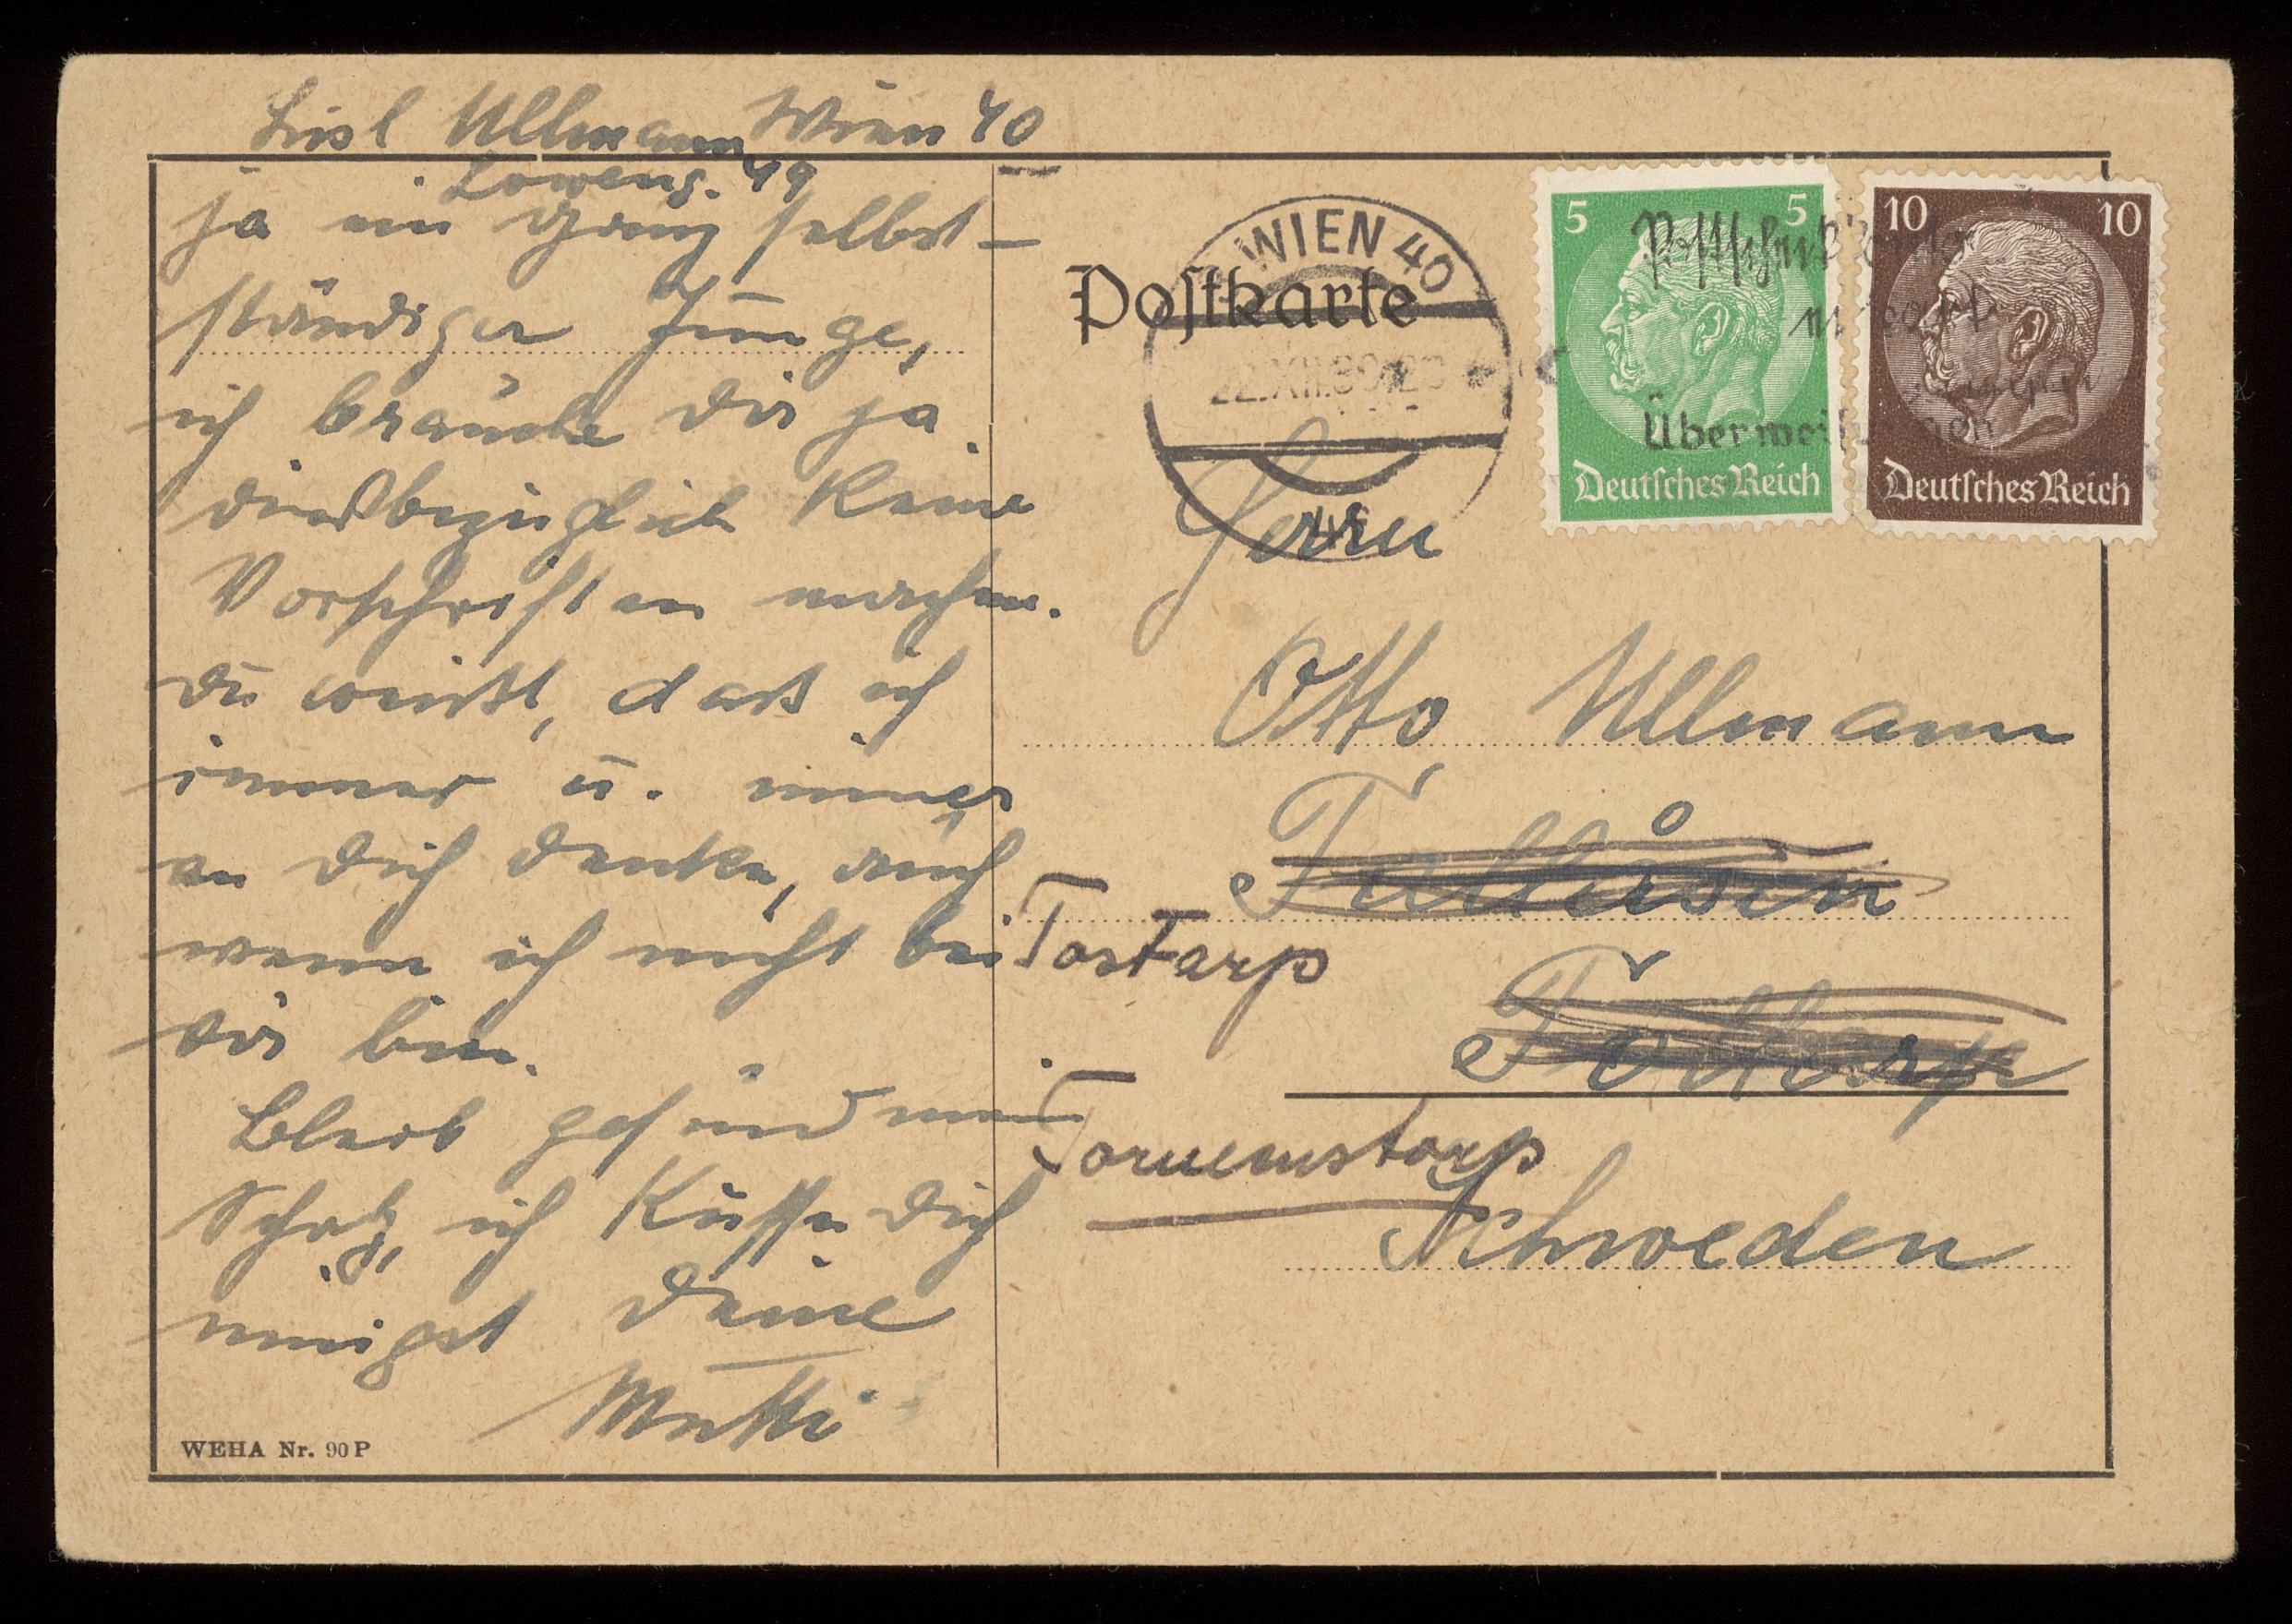 Lisl Ullmann Wien 40
Löweng. 49
ja ein ganz selbst-
ständiger Junge,
ich brauche dir ja
diesbezüglich keine
Vorschriften machen.
Du weißt, daß ich
immer u. immer
an Dich denke, auch
wenn ich nicht bei
dir bin.
Bleib gesund mein
Schatz, ich küsse Dich
innigst Deine
Mutti
WEHA Nr. 90 P
Postkarte
WIEN 40
22.XII.39
5 5
Deutsches Reich
10 10
Deutsches Reich
Überweisungen
Herrn
Otto Ullmann
Tostarp
Tormestorp
Schweden